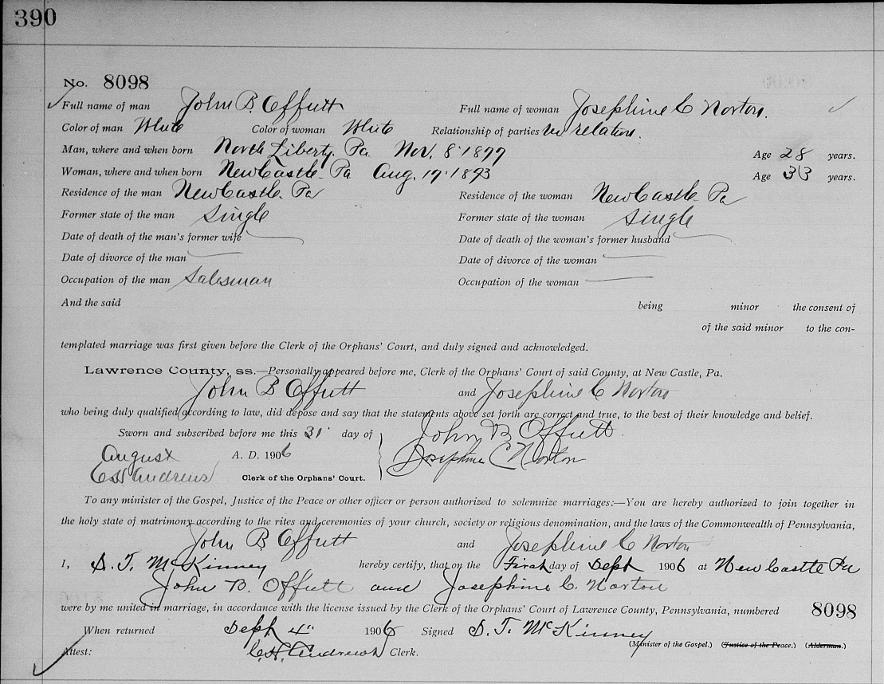 390
No. 8098
Full name of man John B. Offutt Full name of woman Josephine C Norton.
Color of man White Color of woman White Relationship of parties no relation.
Man, where and when born North Liberty, Pa Nov. 8 1877 Age 28 years.
Woman, where and when born New Castle, Pa Aug. 19 1873 Age 33 years.
Residence of the man New Castle. Pa Residence of the woman New Castle Pa
Former state of the man Single Former state of the woman Single
Date of death of the man's former wife Date of death of the woman's former husband
Date of divorce of the man Date of divorce of the woman
Occupation of the man Salesman Occupation of the woman
And the said being minor the consent of
of the said minor to the con-
templated marriage was first given before the Clerk of the Orphans' Court, and duly signed and acknowledged.
Lawrence County, ss.—Personally appeared before me, Clerk of the Orphans' Court of said County, at New Castle, Pa.
John B Offutt and Josephine C Norton
who being duly qualified according to law, did depose and say that the statements above set forth are correct and true, to the best of their knowledge and belief.
Sworn and subscribed before me this 31 day of John B Offutt
August A. D. 1906 Josephine C Norton
C H Andrews Clerk of the Orphans' Court.
To any minister of the Gospel, Justice of the Peace or other officer or person authorized to solemnize marriages:—You are hereby authorized to join together in
the holy state of matrimony according to the rites and ceremonies of your church, society or religious denomination, and the laws of the Commonwealth of Pennsylvania,
John B Offutt and Josephine C Norton
I, S. T. McKinney hereby certify, that on the First day of Sept 1906 at New Castle Pa
John B. Offutt and Josephine C. Norton
were by me united in marriage, in accordance with the license issued by the Clerk of the Orphans' Court of Lawrence County, Pennsylvania, numbered 8098
When returned Sept 4" 1906 Signed S. T. McKinney
(Minister of the Gospel.) (Justice of the Peace.) (Alderman.)
Attest: C.H. Andrews Clerk.